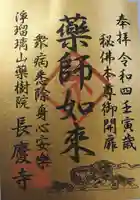 奉拝 令和四壬寅歳
秘佛本尊御開扉
藥師如來
衆病悉除身心安樂
浄瑠璃山藥樹院
長慶寺